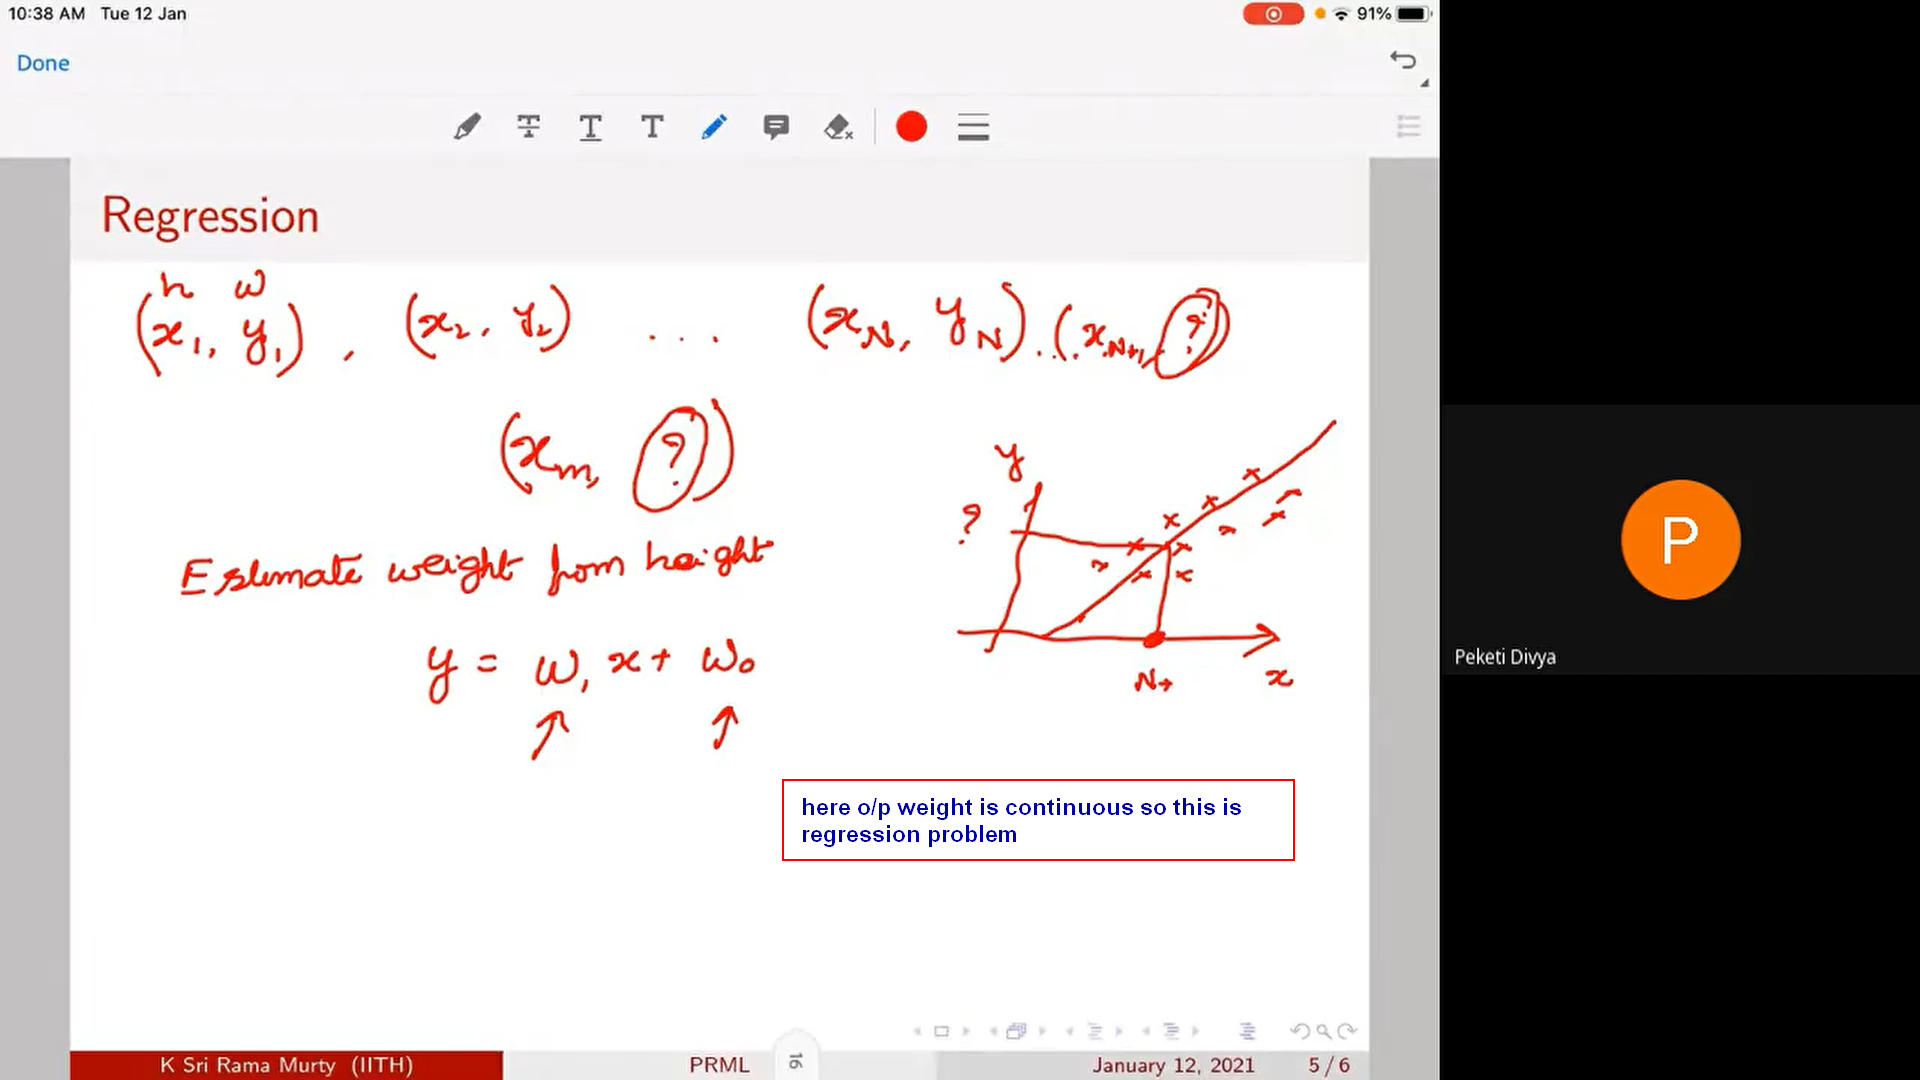 10:38 AM Tue 12 Jan
91%
Done
T T T
Regression
h w
(x₁, y₁), (x₂, y₂) ... (x_N, y_N), (x_N+1, ?)
(x_m, ?)
y
?
Estimate weight from height
y = w₁ x + w₀
N+ x
P
Peketi Divya
here o/p weight is continuous so this is
regression problem
K Sri Rama Murty (IITH) PRML 16 January 12, 2021 5 / 6